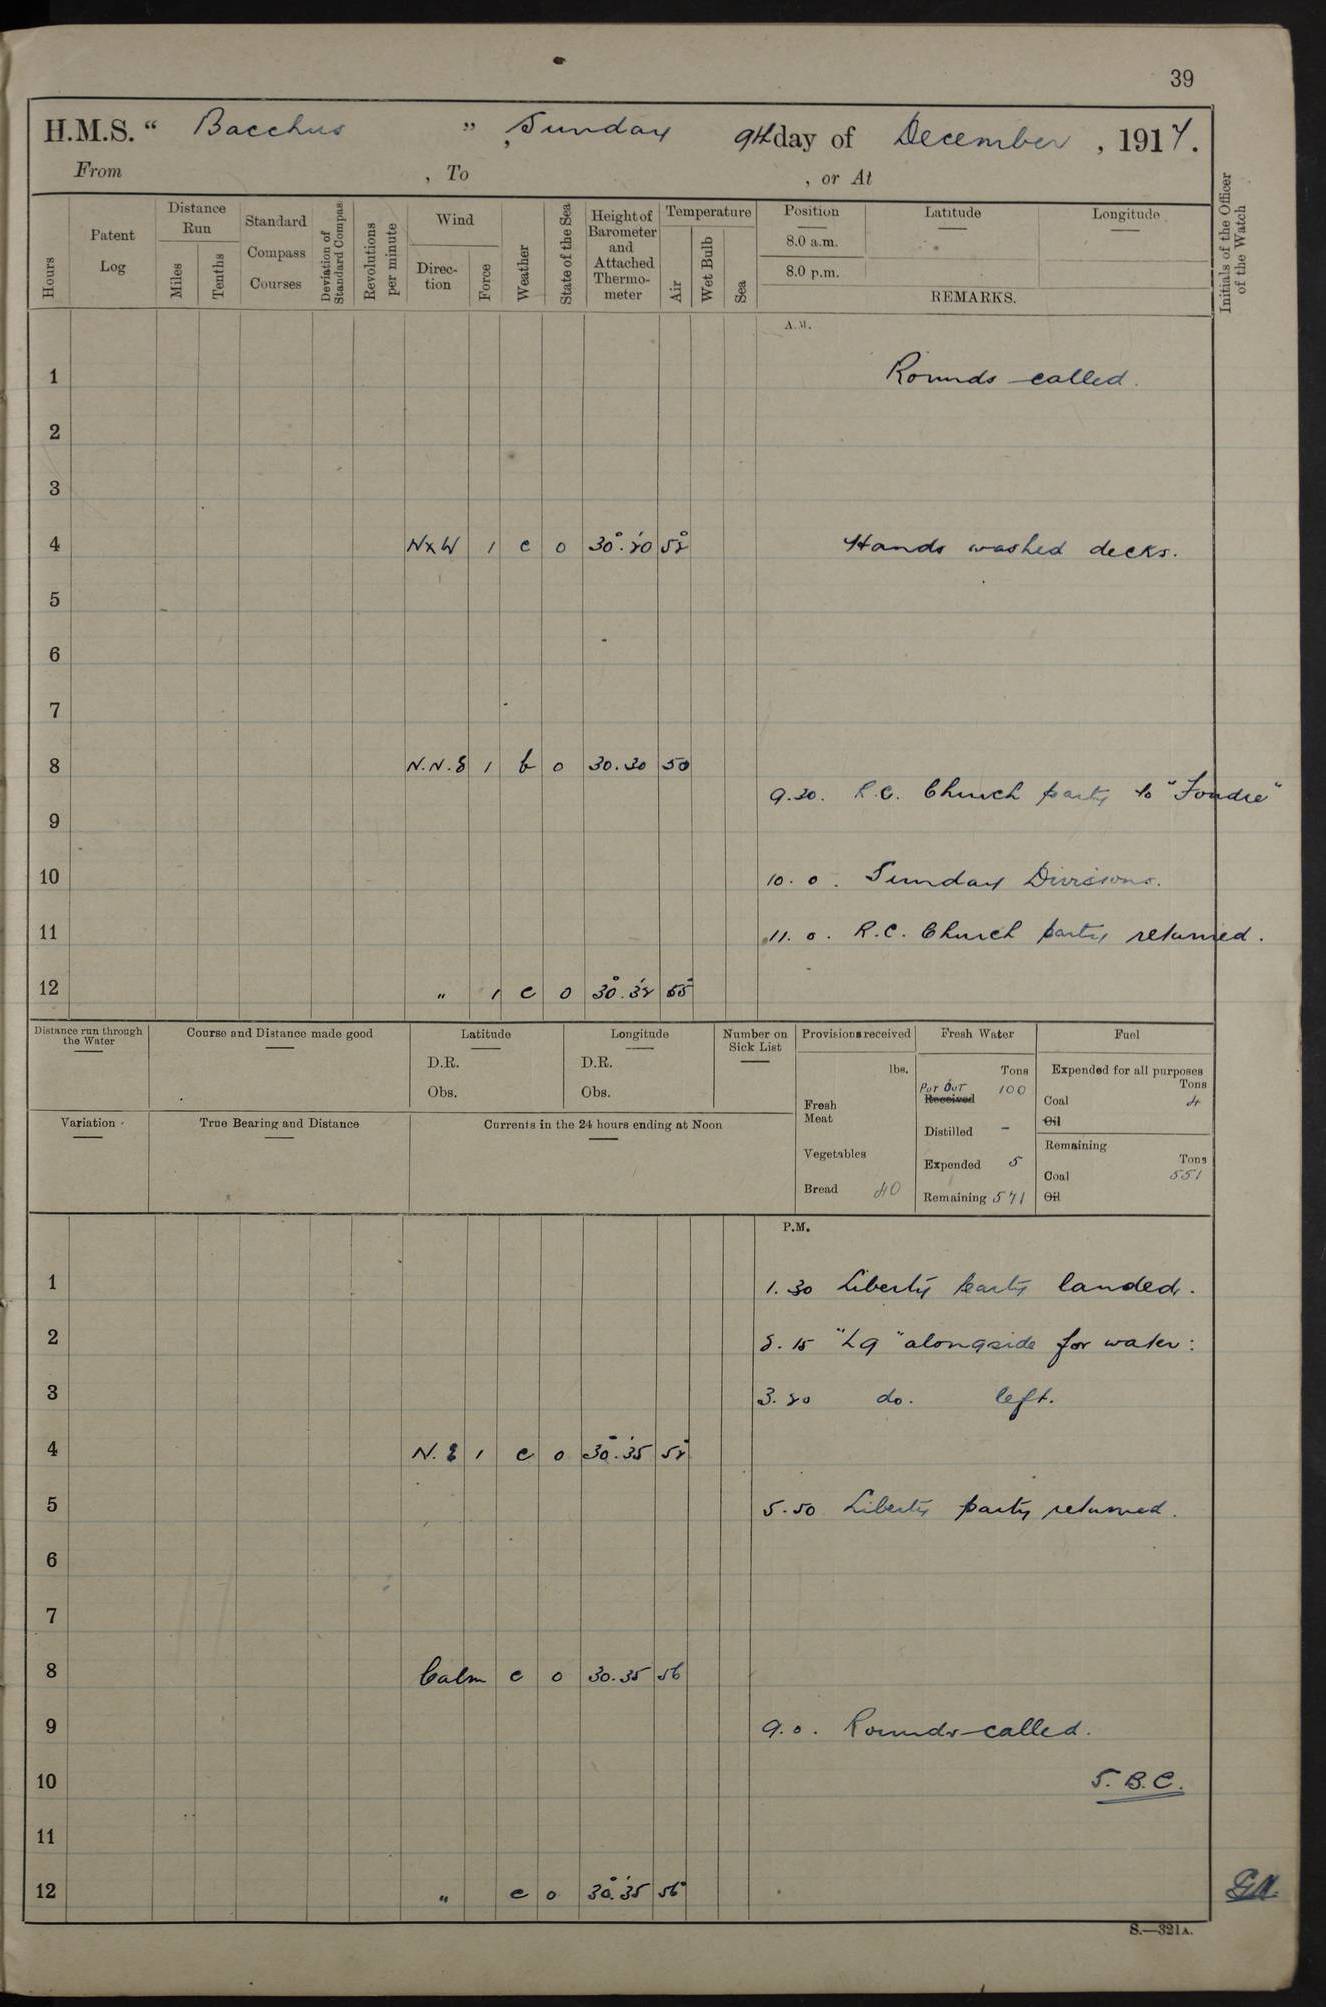 39
H.M.S. “ Bacchus ” , Sunday 9th day of December , 1917.
From , To , or At
Hours
Patent Log
Distance Run
Miles
Tenths
Standard Compass Courses
Deviation of Standard Compass
Revolutions per minute
Wind
Direction
Force
Weather
State of the Sea
Height of Barometer and Attached Thermometer
Temperature
Air
Wet Bulb
Sea
Position
8.0 a.m.
8.0 p.m.
Latitude
Longitude
REMARKS.
Initials of the Officer of the Watch
A.M.
1 Rounds called.
2
3
4 NxW 1 c 0 30.20 52 Hands washed decks.
5
6
7
8 N.N.E 1 b 0 30.30 50
9.30. R.C. Church party to "Foudre"
9
10 10.0. Sunday Divisions.
11 11.0. R.C. Church party returned.
12 " 1 c 0 30.32 55
Distance run through the Water
Course and Distance made good
Latitude
D.R.
Obs.
Longitude
D.R.
Obs.
Number on Sick List
Provisions received
lbs.
Fresh Meat
Vegetables
Bread 40
Fresh Water
Tons
Put Out 100
Received
Distilled -
Expended 5
Remaining 571
Fuel
Expended for all purposes
Tons
Coal 4
Oil
Remaining
Tons
Coal 551
Oil
Variation
True Bearing and Distance
Currents in the 24 hours ending at Noon
P.M.
1 1.30 Liberty party landed.
2 2.15 "L9" alongside for water:
3 3.20 do. left.
4 N.E 1 c 0 30.35 52
5 5.50 Liberty party returned.
6
7
8 Calm c 0 30.35 56
9 9.0. Rounds called.
10 S.B.C.
11
12 " c 0 30.35 56
S.—321A.